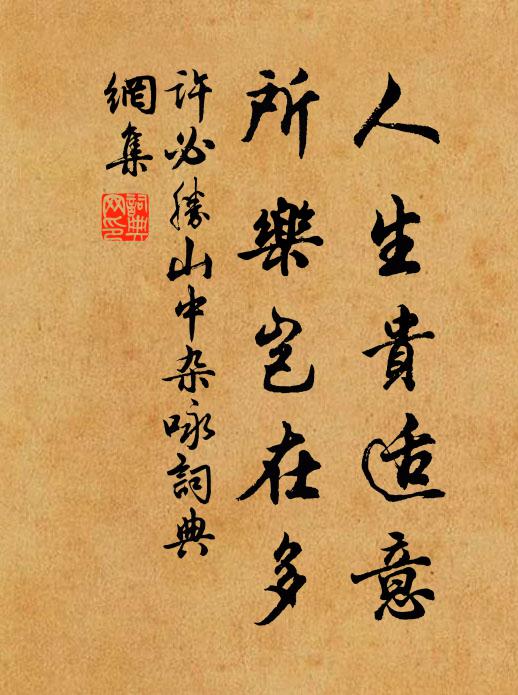 人生貴适意
所樂岂在多
许必勝山中杂咏詞典
網集
詞典网印